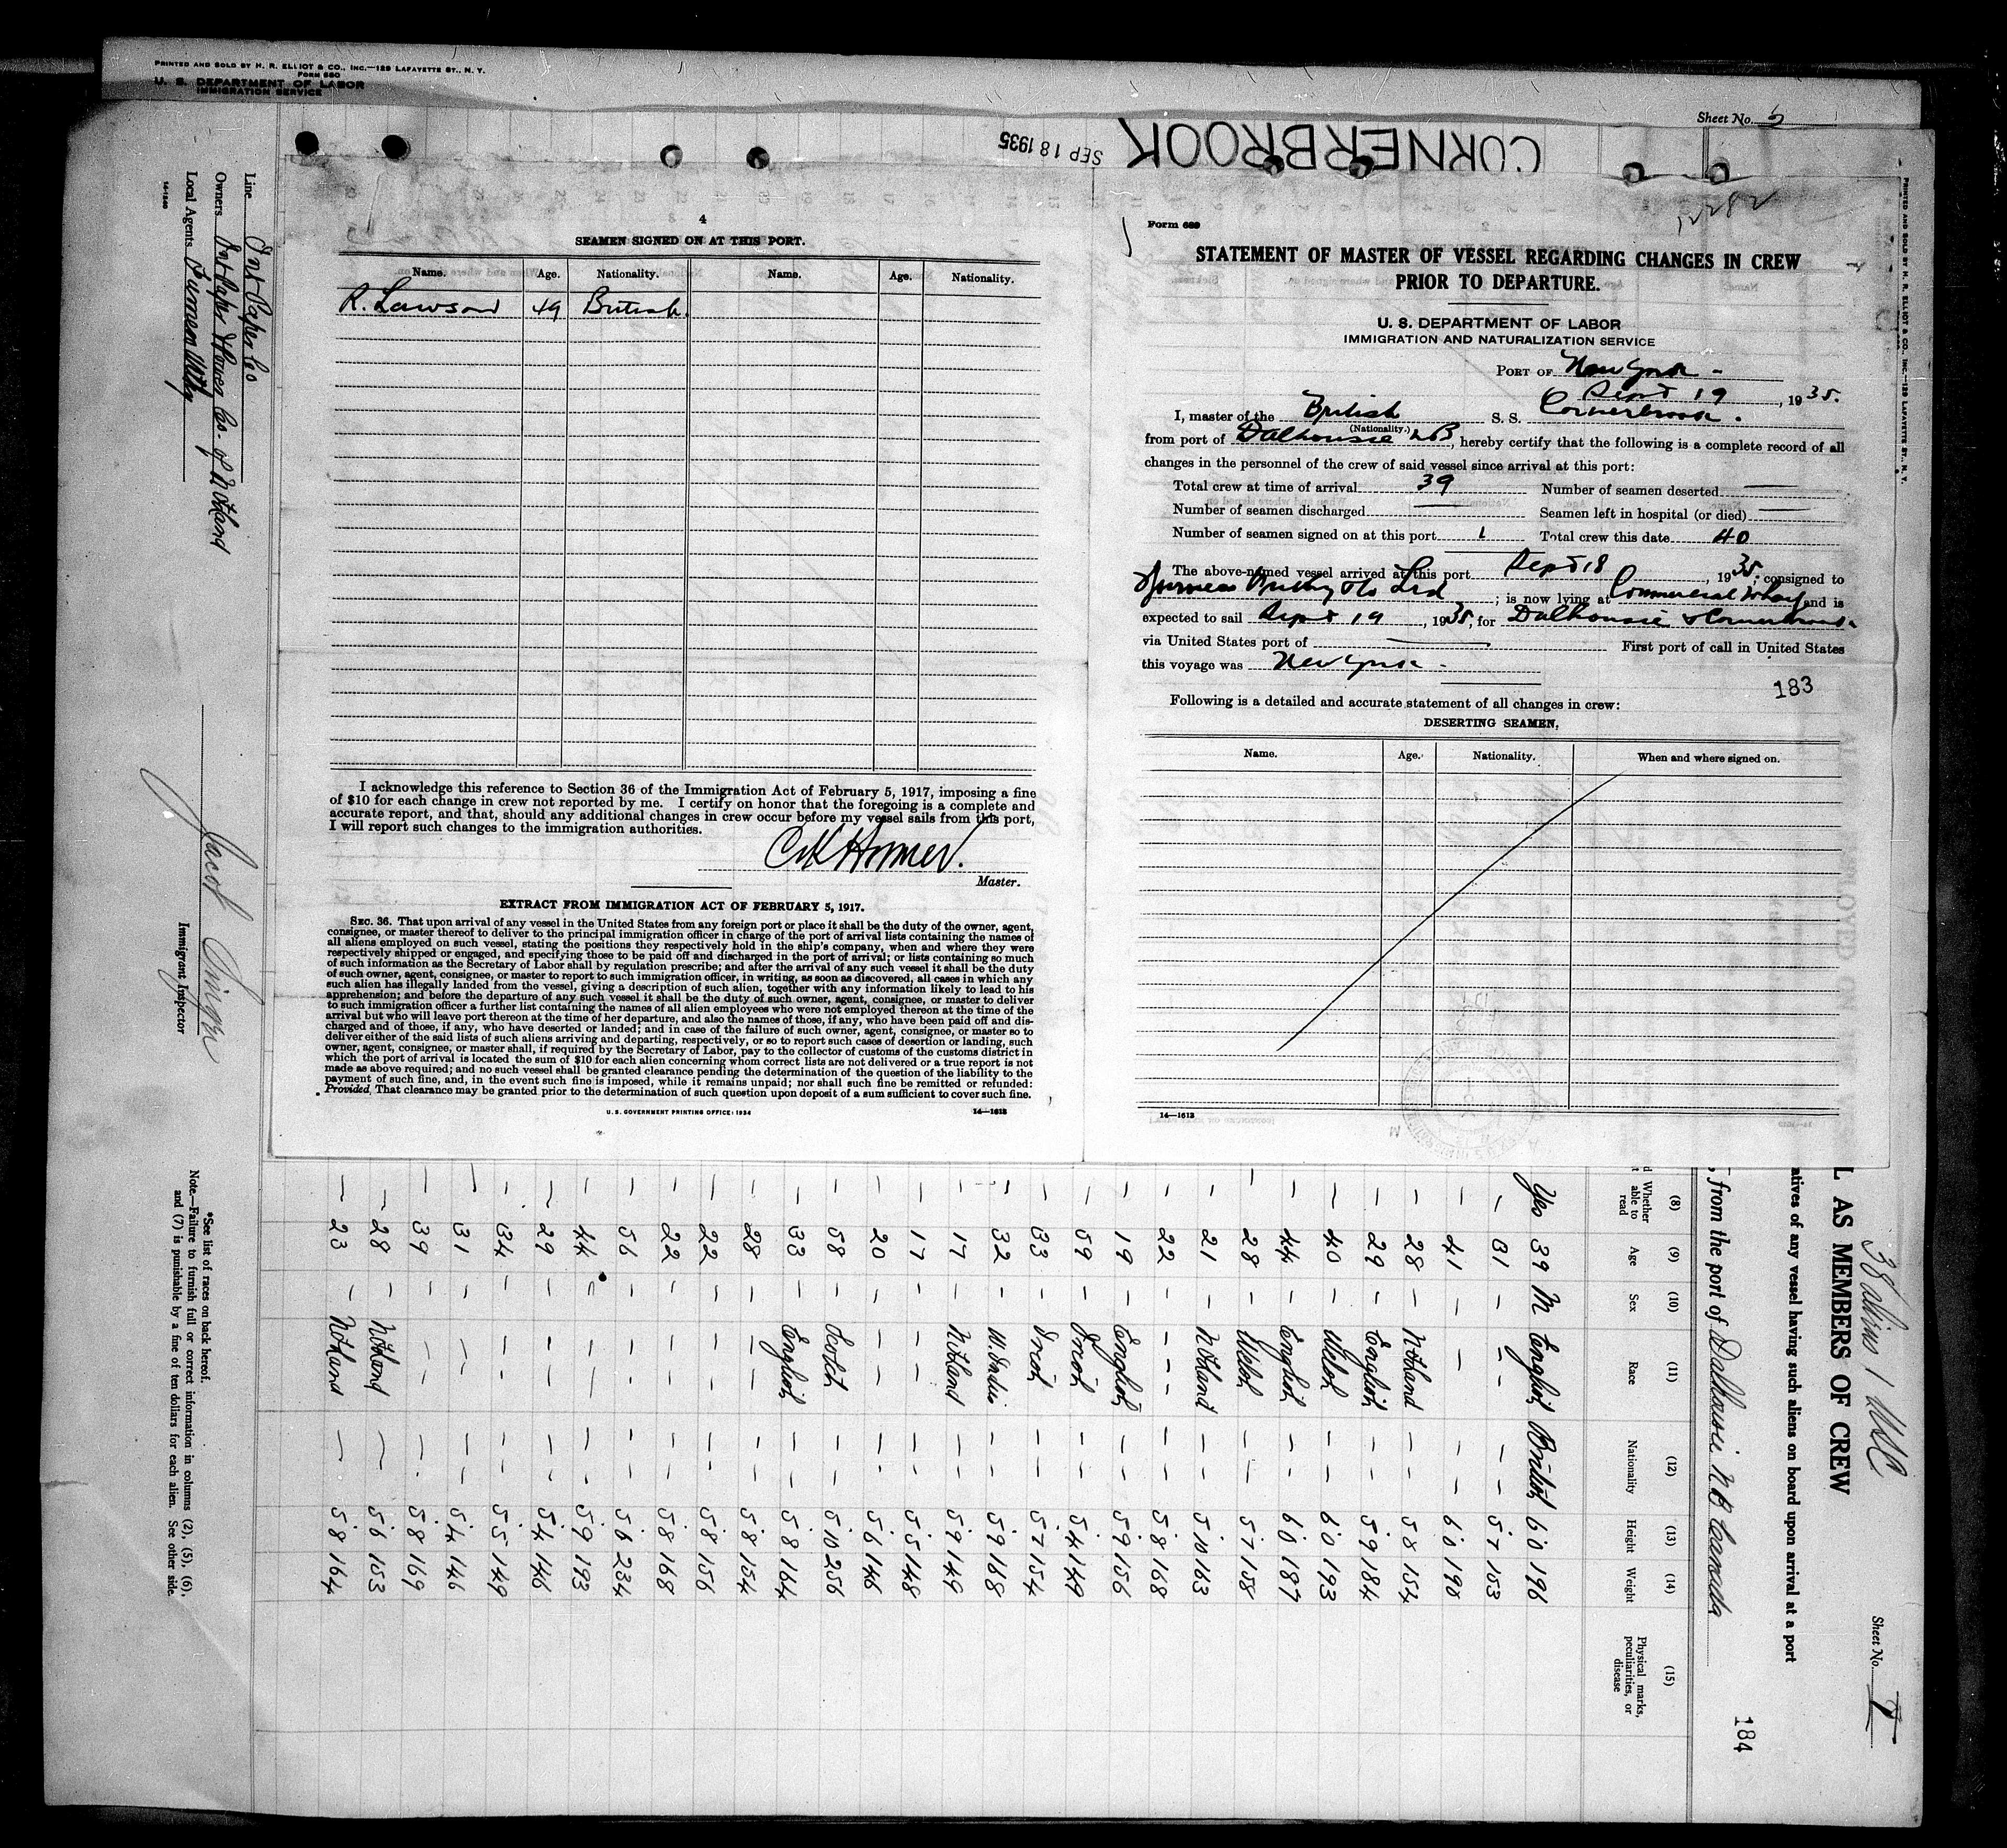 PRINTED AND SOLD BY H. R. ELLIOT & CO., INC.—129 LAFAYETTE ST., N. Y.
FORM 680
U. S. DEPARTMENT OF LABOR
IMMIGRATION SERVICE
Sheet No.
CORNERBROOK
SEP 18 1935
4
SEAMEN SIGNED ON AT THIS PORT.
Name. Age. Nationality. Name. Age. Nationality.
R. Lawson 49 British.
I acknowledge this reference to Section 36 of the Immigration Act of February 5, 1917, imposing a fine
of $10 for each change in crew not reported by me. I certify on honor that the foregoing is a complete and
accurate report, and that, should any additional changes in crew occur before my vessel sails from this port,
I will report such changes to the immigration authorities.
Master.
EXTRACT FROM IMMIGRATION ACT OF FEBRUARY 5, 1917.
SEC. 36. That upon arrival of any vessel in the United States from any foreign port or place it shall be the duty of the owner, agent,
consignee, or master thereof to deliver to the principal immigration officer in charge of the port of arrival lists containing the names of
all aliens employed on such vessel, stating the positions they respectively hold in the ship's company, when and where they were
respectively shipped or engaged, and specifying those to be paid off and discharged in the port of arrival; or lists containing so much
of such information as the Secretary of Labor shall by regulation prescribe; and after the arrival of any such vessel it shall be the duty
of such owner, agent, consignee, or master to report to such immigration officer, in writing, as soon as discovered, all cases in which any
such alien has illegally landed from the vessel, giving a description of such alien, together with any information likely to lead to his
apprehension; and before the departure of any such vessel it shall be the duty of such owner, agent, consignee, or master to deliver
to such immigration officer a further list containing the names of all alien employees who were not employed thereon at the time of the
arrival but who will leave port thereon at the time of her departure, and also the names of those, if any, who have been paid off and dis-
charged and of those, if any, who have deserted or landed; and in case of the failure of such owner, agent, consignee, or master so to
deliver either of the said lists of such aliens arriving and departing, respectively, or so to report such cases of desertion or landing, such
owner, agent, consignee, or master shall, if required by the Secretary of Labor, pay to the collector of customs of the customs district in
which the port of arrival is located the sum of $10 for each alien concerning whom correct lists are not delivered or a true report is not
made as above required; and no such vessel shall be granted clearance pending the determination of the question of the liability to the
payment of such fine, and, in the event such fine is imposed, while it remains unpaid; nor shall such fine be remitted or refunded:
Provided, That clearance may be granted prior to the determination of such question upon deposit of a sum sufficient to cover such fine.
U. S. GOVERNMENT PRINTING OFFICE: 1934 14—1613
Form 689
STATEMENT OF MASTER OF VESSEL REGARDING CHANGES IN CREW
PRIOR TO DEPARTURE.
U. S. DEPARTMENT OF LABOR
IMMIGRATION AND NATURALIZATION SERVICE
PORT OF New York -
Sept 19, 1935.
I, master of the British S. S. Cornerbrook.
(Nationality.)
from port of Dalhousie NB, hereby certify that the following is a complete record of all
changes in the personnel of the crew of said vessel since arrival at this port:
Total crew at time of arrival 39 Number of seamen deserted —
Number of seamen discharged — Seamen left in hospital (or died) —
Number of seamen signed on at this port 1 Total crew this date 40
The above-named vessel arrived at this port Sept 18, 1935; consigned to
Furness Withy & Co Ltd; is now lying at Commercial Wharf and is
expected to sail Sept 19, 1935, for Dalhousie & Cornerbrook
via United States port of — First port of call in United States
this voyage was New York -
183
Following is a detailed and accurate statement of all changes in crew:
DESERTING SEAMEN,
Name. Age. Nationality. When and where signed on.
14—1613
PRINTED AND SOLD BY H. R. ELLIOT & CO., INC.—129 LAFAYETTE ST., N. Y.
38 aliens 1 USC
Sheet No. 1
L AS MEMBERS OF CREW
atives of any vessel having such aliens on board upon arrival at a port
, from the port of Dalhousie N B Canada
184
(8) (9) (10) (11) (12) (13) (14) (15)
Whether able to read Age Sex Race Nationality Height Weight Physical marks, peculiarities, or disease
Yes 39 M English British 6 0 196
— 31 — — — 5 7 153
— 41 — — — 6 0 190
— 28 — Nfland — 5 8 154
— 29 — English — 5 9 184
— 40 — Welsh — 6 0 193
— 44 — English — 6 0 187
— 28 — Welsh — 5 7 158
— 21 — Nfland — 5 10 163
— 22 — — — 5 8 168
— 19 — English — 5 9 156
— 59 — Irish — 5 4 149
— 33 — Irish — 5 7 154
— 32 — W. Indis — 5 9 168
— 17 — Nfland — 5 9 149
— 17 — — — 5 5 148
— 20 — — — 5 6 146
— 58 — Scotch — 5 10 256
— 33 — English — 5 8 164
— 28 — — — 5 8 154
— 22 — — — 5 8 156
— 22 — — — 5 8 168
— 56 — — — 5 6 234
— 44 — — — 5 9 193
— 29 — — — 5 4 146
— 34 — — — 5 5 149
— 31 — — — 5 4 146
— 39 — — — 5 8 169
— 28 — Nfland — 5 6 153
— 23 — Nfland — 5 8 164
Line Int Paper Co
Owners Int Paper & Power Co. of Nfland
Local Agents Furness Withy
14-1240
Jacob
Immigrant Inspector
*See list of races on back hereof.
Note.—Failure to furnish full or correct information in columns (2), (5), (6),
and (7) is punishable by a fine of ten dollars for each alien. See other side.